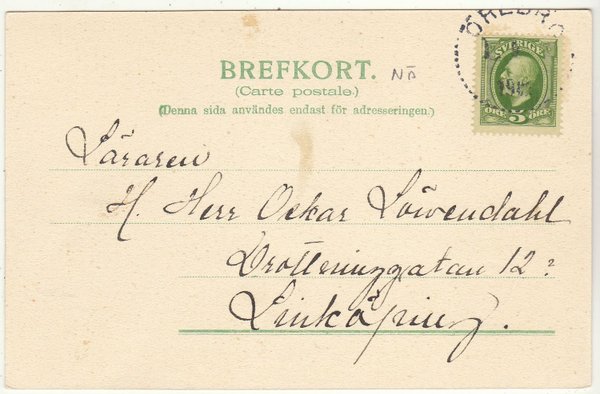 BREFKORT. NÄ
(Carte postale.)
(Denna sida användes endast för adresseringen.)
ÖREBRO
SVERIGE
ÖRE 5 ÖRE
Läraren
H. Herr Oskar Löwendahl
Drottninggatan 12
Linköping.